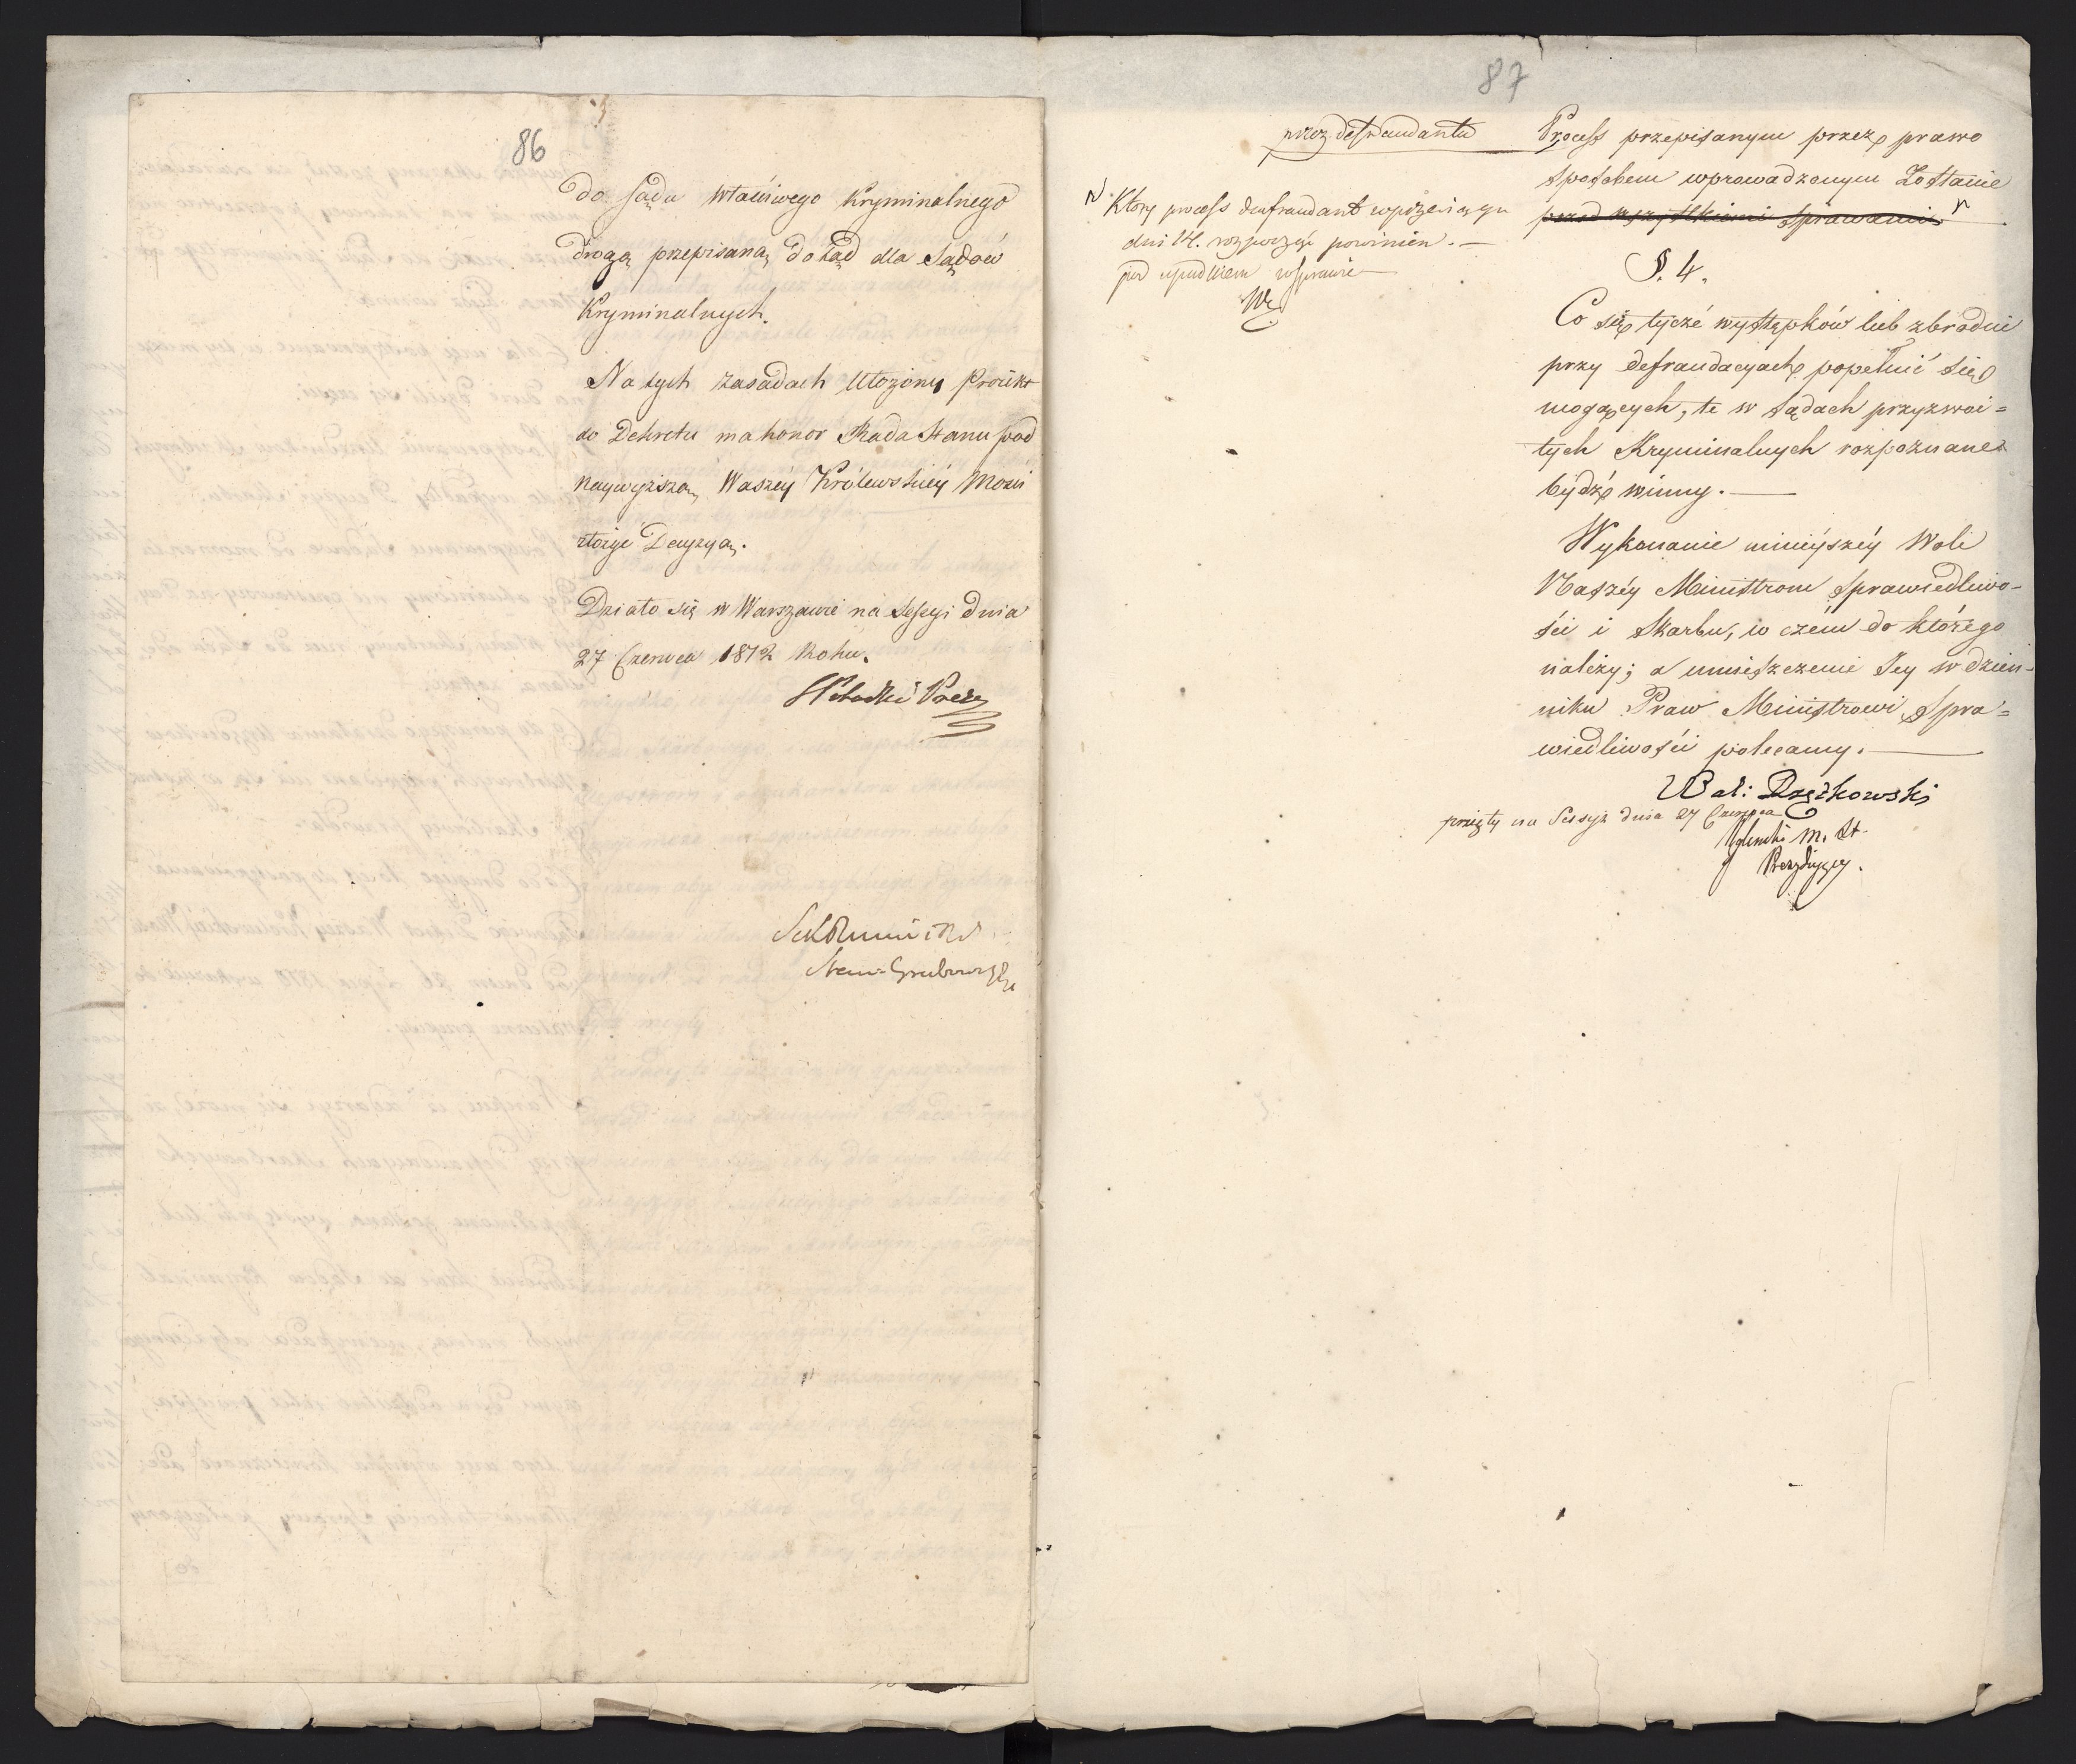 86
do Sądu właściwego Kryminalnego
drogą przepisaną dotąd dla Sądów
Kryminalnych.
Na tych zasadach ułożony Proiekt
do Dekretu ma honor Rada Stanu pod
naywyższą Waszéy Królewskiéy Mości
złożyć Decyzyą.
Działo się w Warszawie na Sessyi dnia
27 Czerwca 1812 Roku.
Prezes
87
przez defraudanta
Process przepisanym przez prawo
sposobem wprowadzonym Zostanie
przed wszystkiemi sprawami
Który process defraudant w przeciągu
dni 14. rozpocząć powinien. —
pod upadkiem w sprawie —
§. 4.
Co się tyczé występków lub zbrodni
przy defraudacyach popełnić się
mogących, te w sądach przyzwoi=
tych Kryminalnych rozpoznane
bydź winny. —
Wykonanie ninieyszéy Woli
Naszéy Ministrom Sprawiedliwo-
ści i Skarbu, w czém do którego
należy; a umieszczenie Jey w dzien-
niku Praw Ministrowi Spra=
wiedliwości polecamy. —
przyięty na Sessyi dnia 27 Czerwca
M. St.
Prezyduiący.